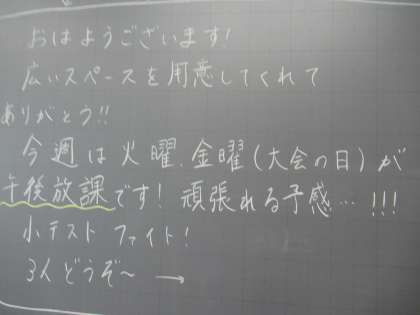 おはようございます!
広いスペースを用意してくれて
ありがとう!!
今週は火曜.金曜(大会の日)が
午後放課です! 頑張れる予感…!!!
小テスト ファイト!
3人どうぞ〜 →